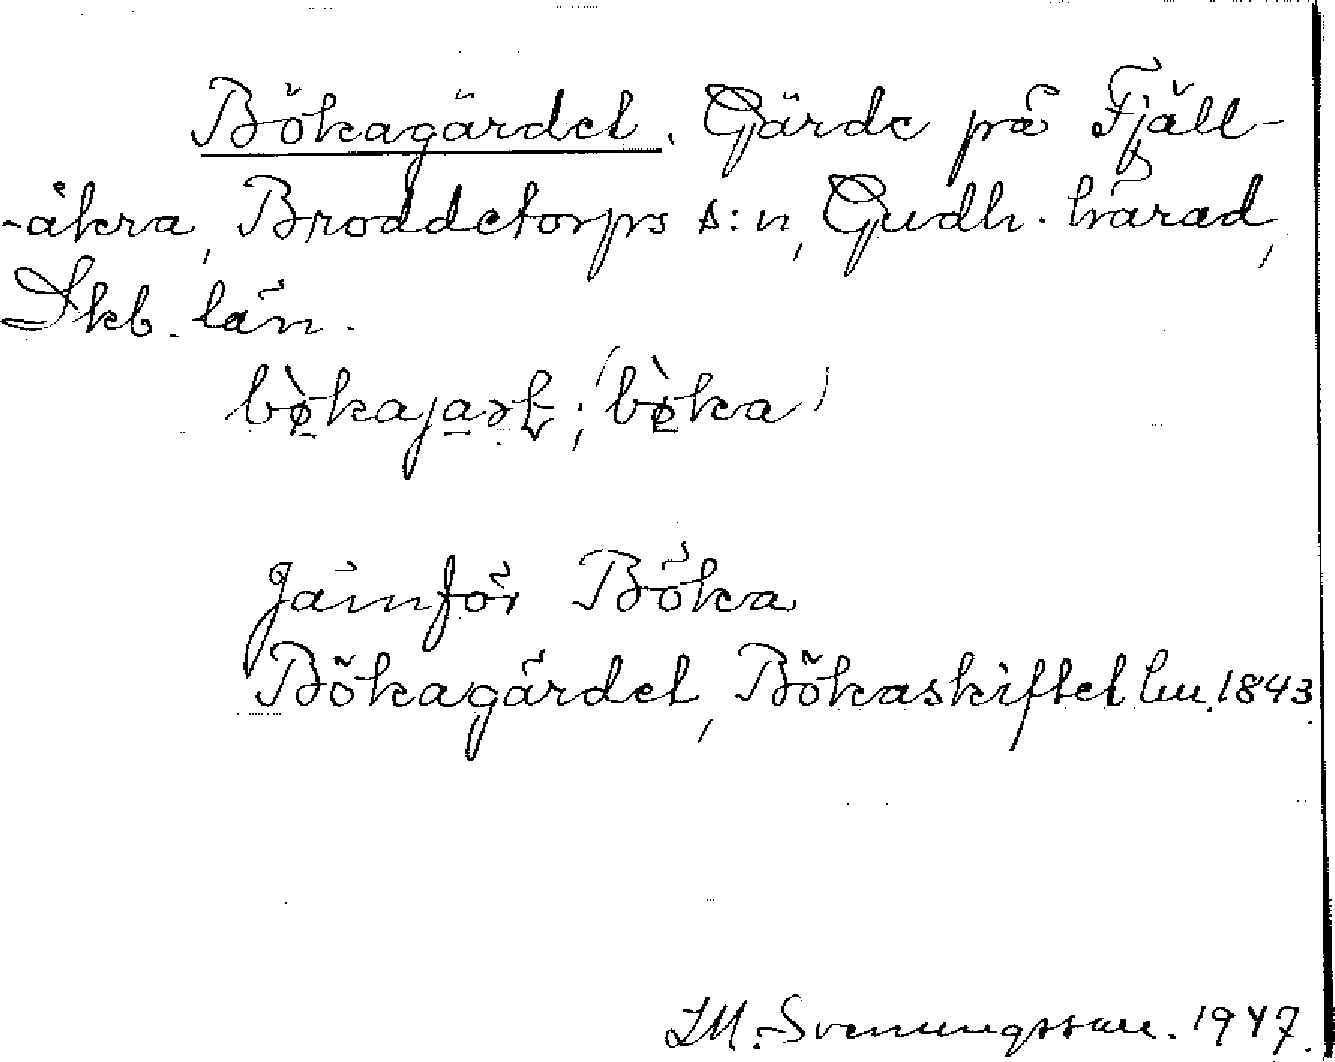 Bökagärdet. Gärde på Fjäll-
-åkra, Broddetorps s:n, Gudh. härad,
Skb. län.
Jämför Böka
Bökagärdet, Bökaskiftet lm. 1843.
Svenungsson. 1947.